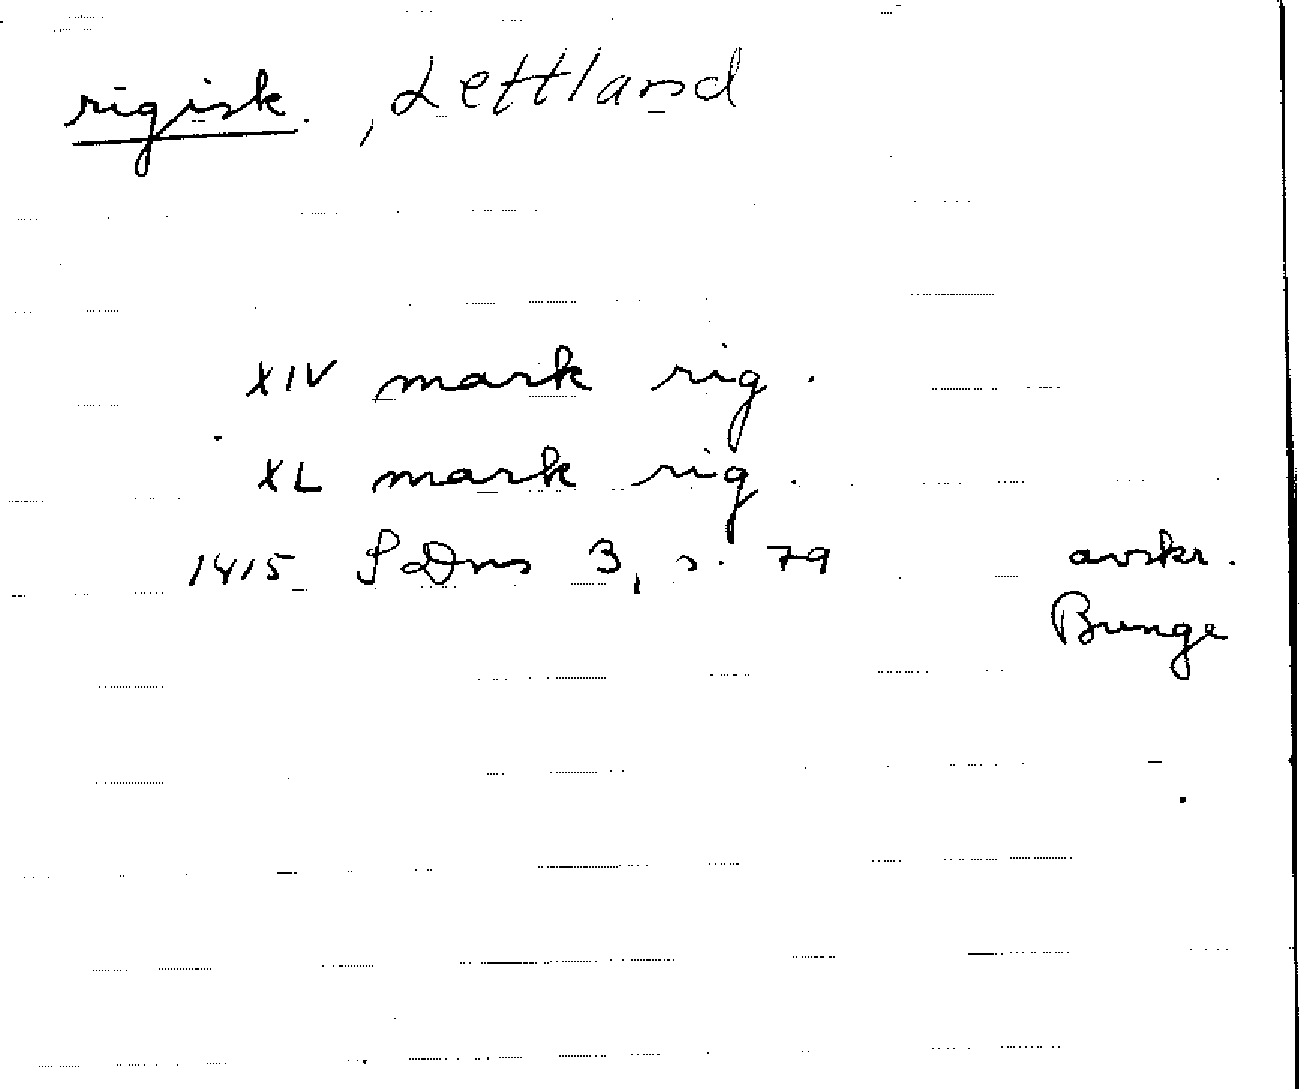 rigisk. , Lettland
XIV mark rig.
XL mark rig.
1415 SDns 3, s. 79 avskr.
Bunge